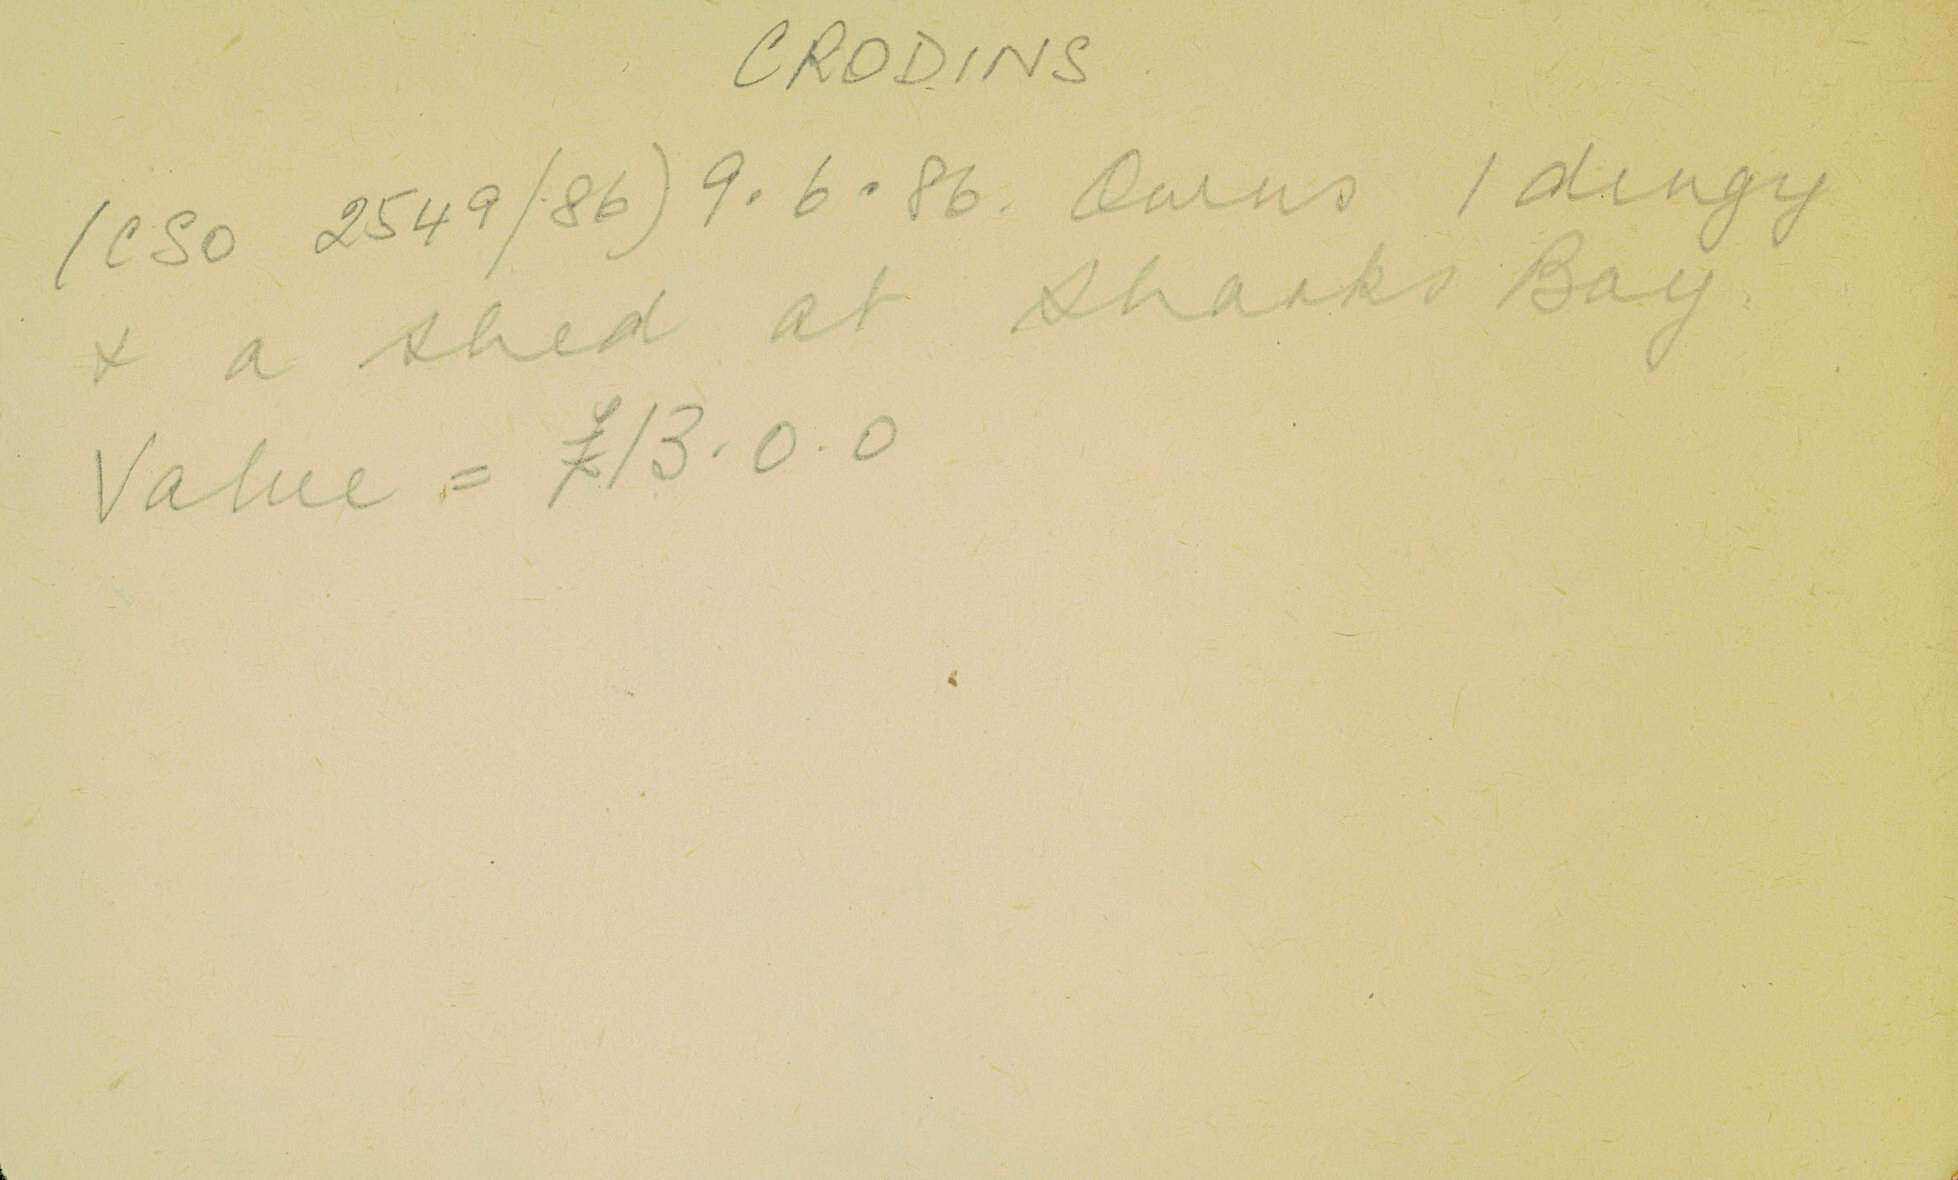 CRODINS
(CSO 2549/86) 9.6.86. Owns 1 dingy
& a shed at Sharks Bay.
Value = £13.0.0